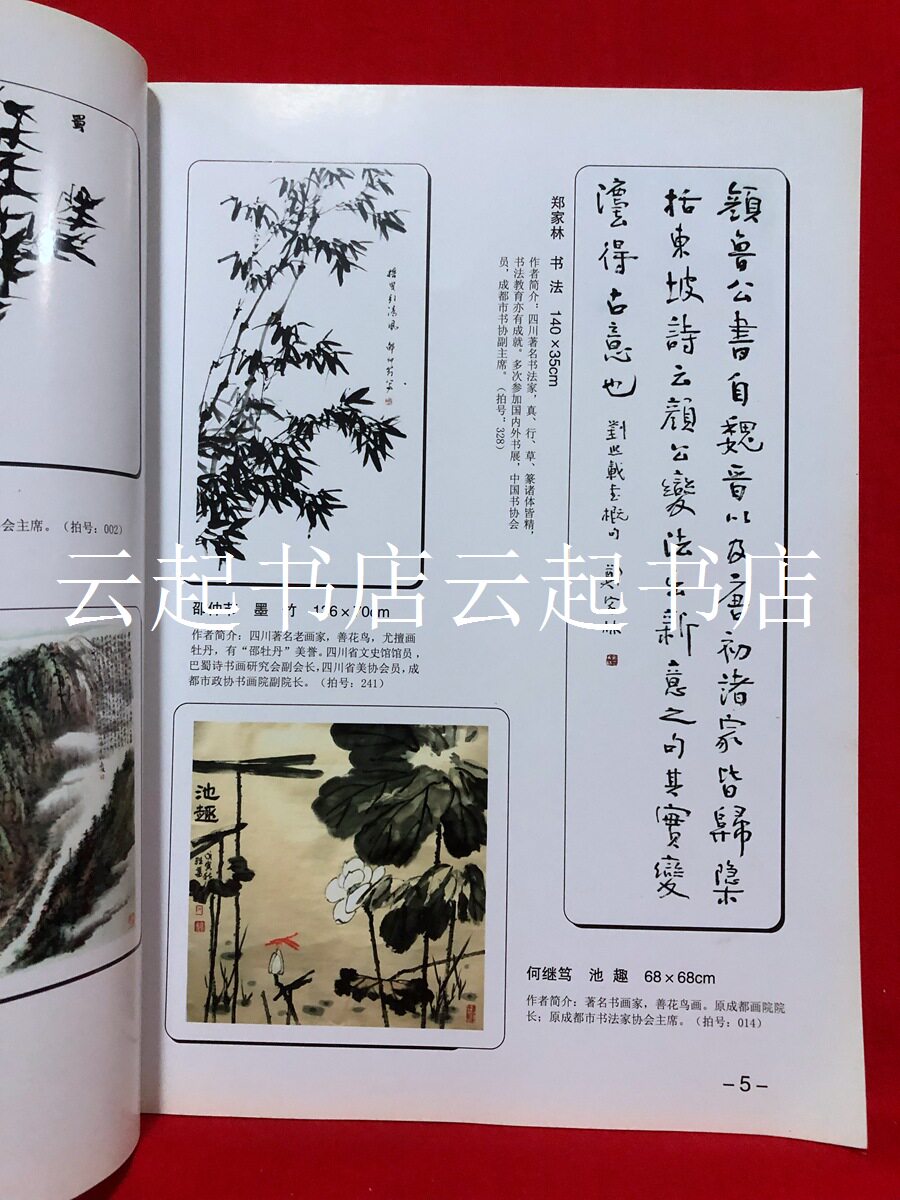 蜀
会主席。（拍号：002）
郑家林 书 法 140×35cm
作者简介：四川著名书法家，真、行、草、篆诸体皆精，
书法教育亦有成就。多次参加国内外书展，中国书协会
员，成都市书协副主席。（拍号：328）
顔魯公書自魏晋以及唐初諸家皆歸隱
括東坡詩云顔公變法出新意之句其實變
灋得古意也 劉熙載書概句 鄭家林
云起书店云起书店
邵仲节 墨 竹
作者简介：四川著名老画家，善花鸟，尤擅画
牡丹，有“邵牡丹”美誉。四川省文史馆馆员，
巴蜀诗书画研究会副会长，四川省美协会员，成
都市政协书画院副院长。（拍号：241）
池趣
何继笃 池 趣 68×68cm
作者简介：著名书画家，善花鸟画。原成都画院院
长；原成都市书法家协会主席。（拍号：014）
–5–